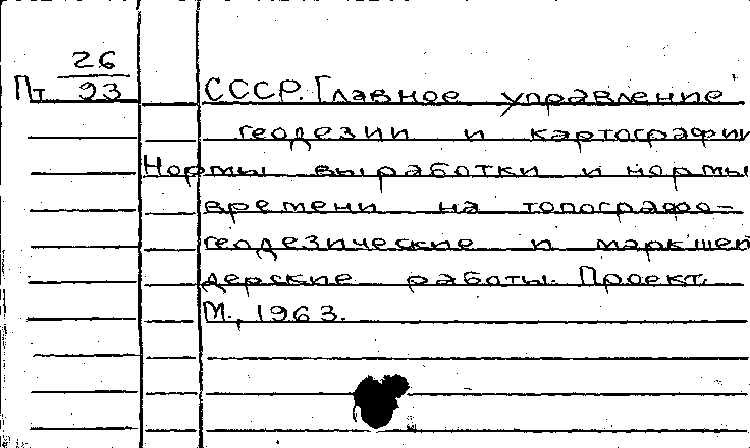 26
Пт 93
СССР. Главное управление
геодезии и картографии
Нормы выработки и нормы
времени на топографо-
геодезические и маркшей
дерские работы. Проект.
М., 1963.